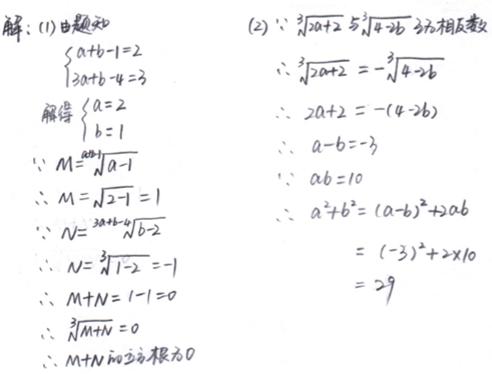 解：(1)由题知
{a+b-1=2
3a+b-4=3
解得{a=2
b=1
∵ M=ᵃ⁺ᵇ⁻¹√(a-1)
∴ M=√(2-1)=1
∵ N=³ᵃ⁺ᵇ⁻⁴√(b-2)
∴ N=³√(1-2)=-1
∴ M+N=1-1=0
∴ ³√(M+N)=0
∴ M+N的立方根为0
(2) ∵ ³√(2a+2)与³√(4-2b)互为相反数
∴ ³√(2a+2)=-³√(4-2b)
∴ 2a+2=-(4-2b)
∴ a-b=-3
∵ ab=10
∴ a²+b²=(a-b)²+2ab
=(-3)²+2×10
=29